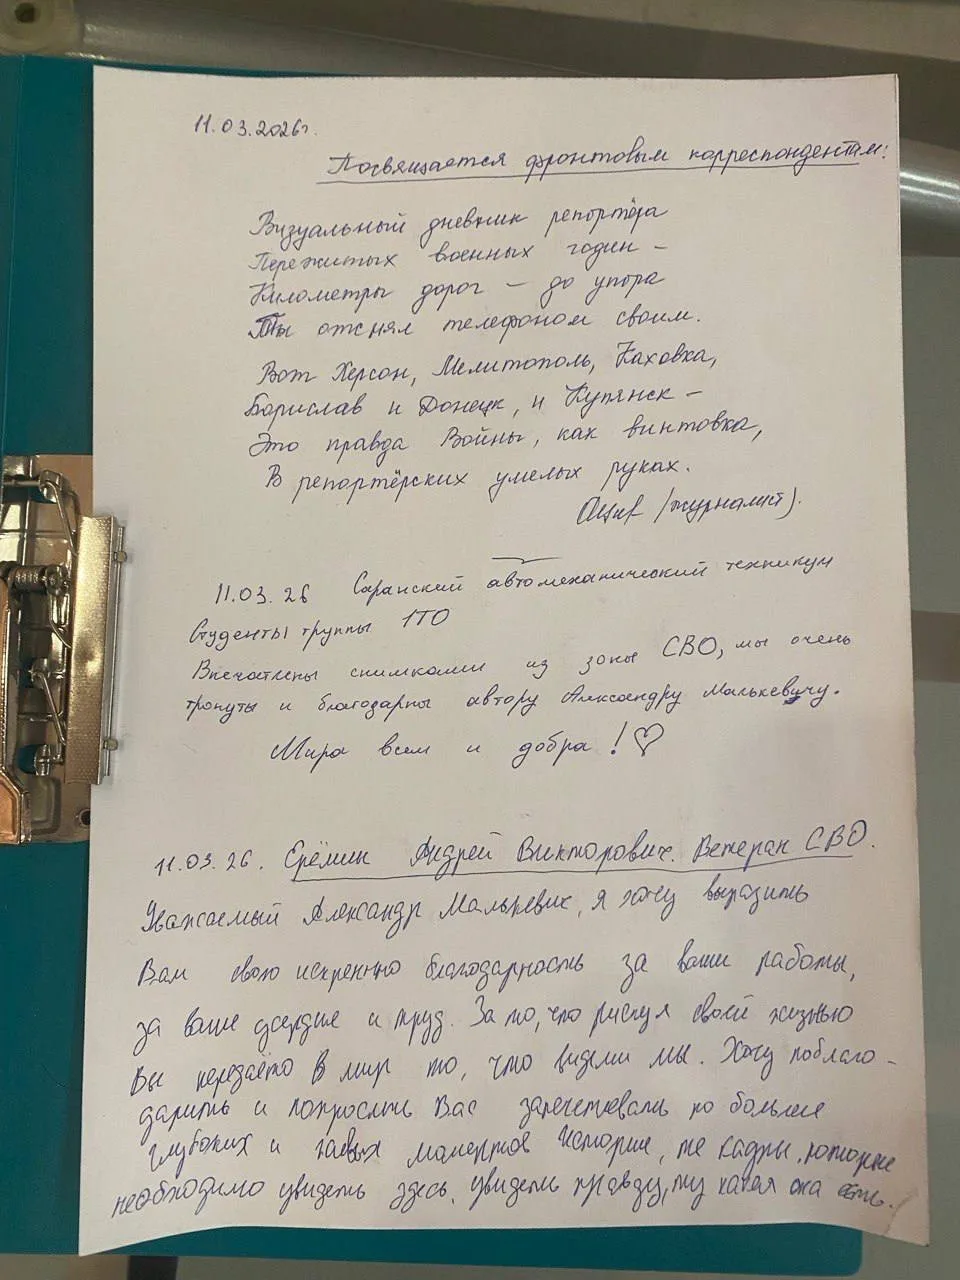 11.03.2026г.
Посвящается фронтовым корреспондентам:
Визуальный дневник репортёра
Пережитых военных годин –
Километры дорог – до упора
Ты отснял телефоном своим.
Вот Херсон, Мелитополь, Каховка,
Борислав и Донецк, и Купянск –
Это правда Войны, как винтовка,
В репортёрских умелых руках.
(журналист).
11.03.26 Саранский автомеханический техникум
Студенты группы 1ТО
Впечатлены снимками из зоны СВО, мы очень
тронуты и благодарны автору Александру Малькевичу.
Мира всем и добра! ♡
11.03.26. Ерёмин Андрей Викторович. Ветеран СВО.
Уважаемый Александр Малькевич, я хочу выразить
Вам свою искреннюю благодарность за ваши работы,
за ваше усердие и труд. За то, что рискуя своей жизнью
Вы передаёте в мир то, что видели мы. Хочу поблаго-
дарить и попросить Вас запечетлевать по больше
глубоких и моментов истории, те кадры, которые
необходимо увидеть здесь, увидеть правду, ту какая она есть.